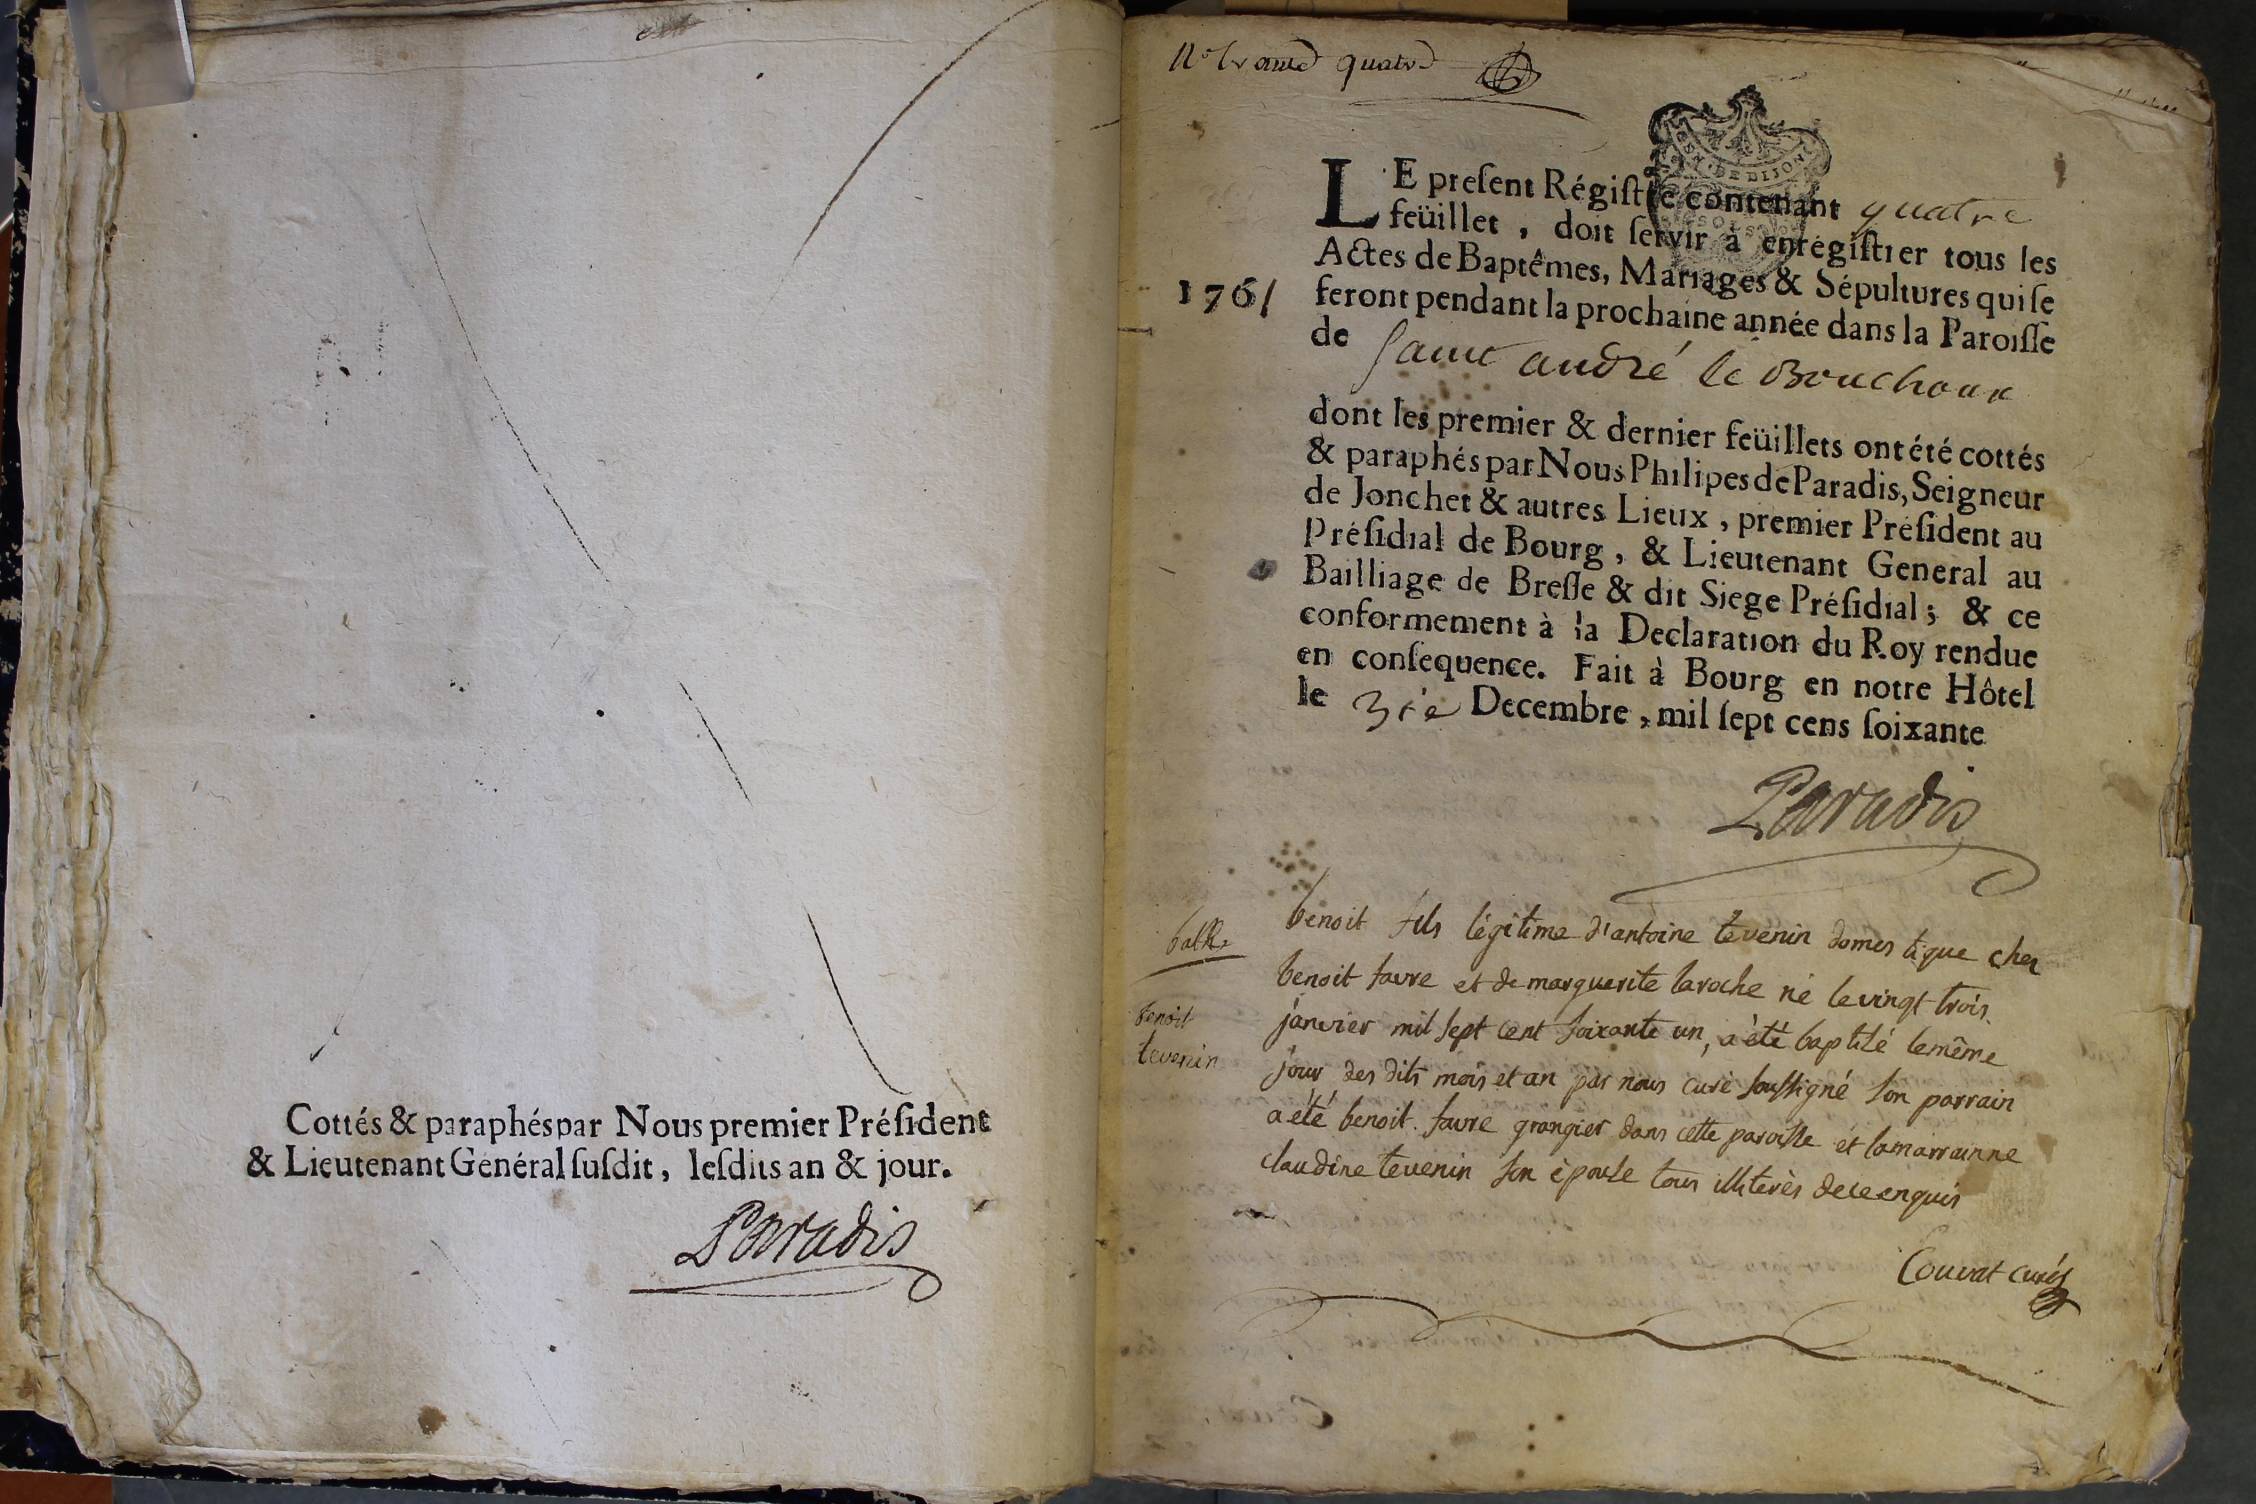 Cottés & paraphés par Nous premier Préſident
& Lieutenant Général ſuſdit, leſdits an & jour.
Paradis
N.º trante quatre
GEN. DE DIJON
LE preſent Régiſtre contenant quatre
feüillet, doit ſervir à enrégiſtrer tous les
Actes de Baptêmes, Mariages & Sépultures qui ſe
1761
feront pendant la prochaine année dans la Paroiſſe
de Saint andré le Bouchoux
dont les premier & dernier feüillets ont été cottés
& paraphés par Nous Philipes de Paradis, Seigneur
de Jonchet & autres Lieux, premier Préſident au
Préſidial de Bourg, & Lieutenant General au
Bailliage de Breſſe & dit Siege Préſidial; & ce
conformement à la Declaration du Roy rendue
en conſequence. Fait à Bourg en notre Hôtel
le Decembre, mil ſept cens ſoixante
Paradis
benoit fils légitime d'antoine tevenin domestique chez
benoit favre et de marguerite laroche né le vingt trois
benoit
tevenin
janvier mil sept cent soixante un, a été baptisé le même
jour des dits mois et an par nous curé soussigné son parrain
a été benoit favre grangier dans cette paroisse et la marrainne
claudine tevenin son épouse tous illiterés de ce enquis
Couvat curé